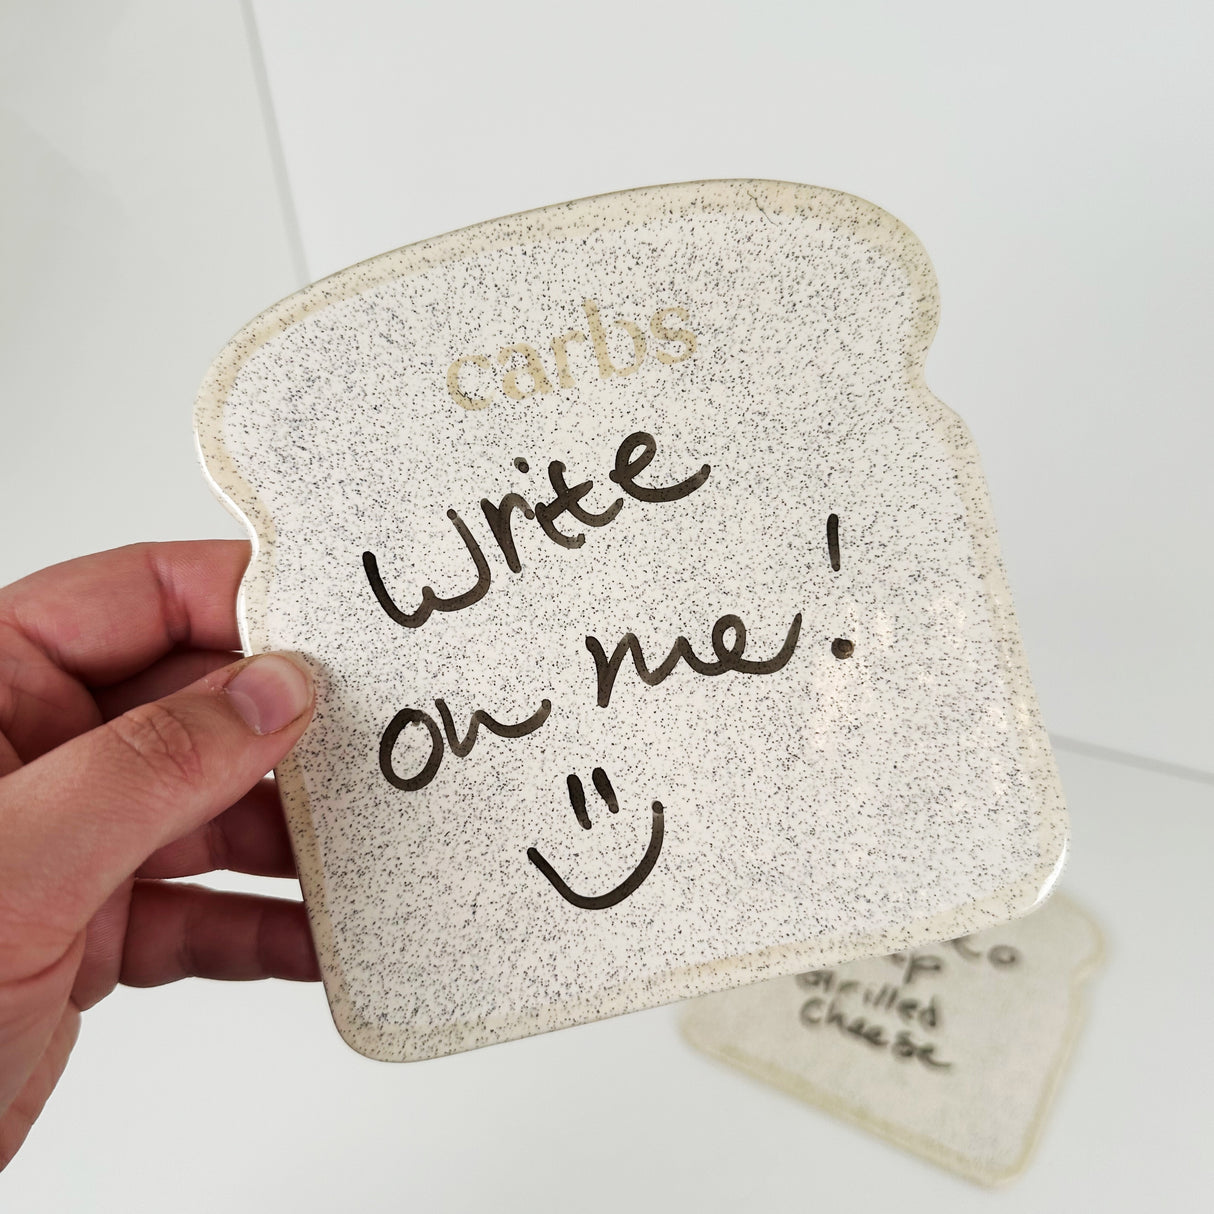 carbs
Write
on me!
Grilled
Cheese